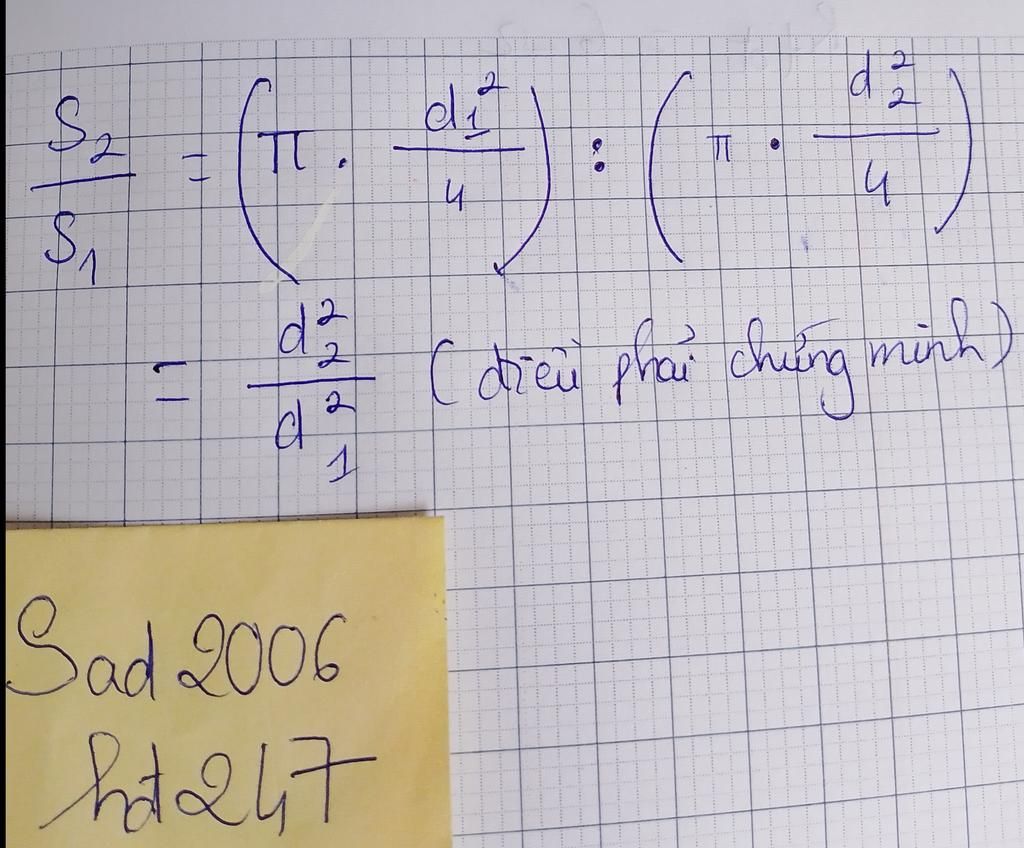 S₂/S₁ = (π . d₁²/4) : (π . d₂²/4)
= d₂²/d₁² (điều phải chứng minh)
Sad 2006
hđ247